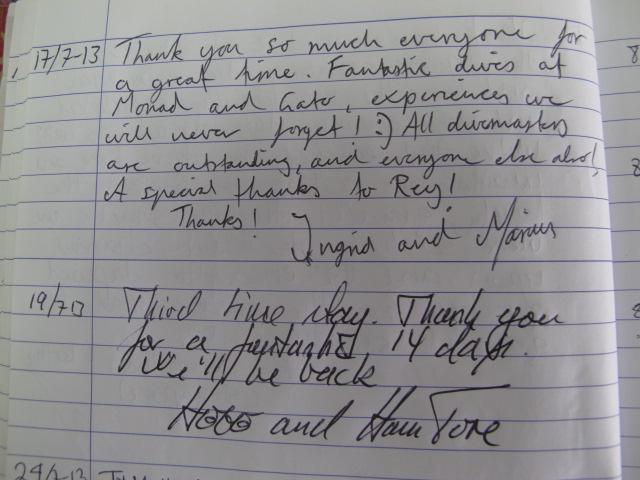 17/7-13 Thank you so much everyone for
a great time. Fantastic dives at
Monad and Gato, experiences we
will never forget! :) All divemasters
are outstanding, and everyone else also!
A special thanks to Rey!
Thanks! Ingrid and Marius
19/7-13 Third time stay. Thank you
for a fantastic 14 days.
We'll be back
and Hans Tore